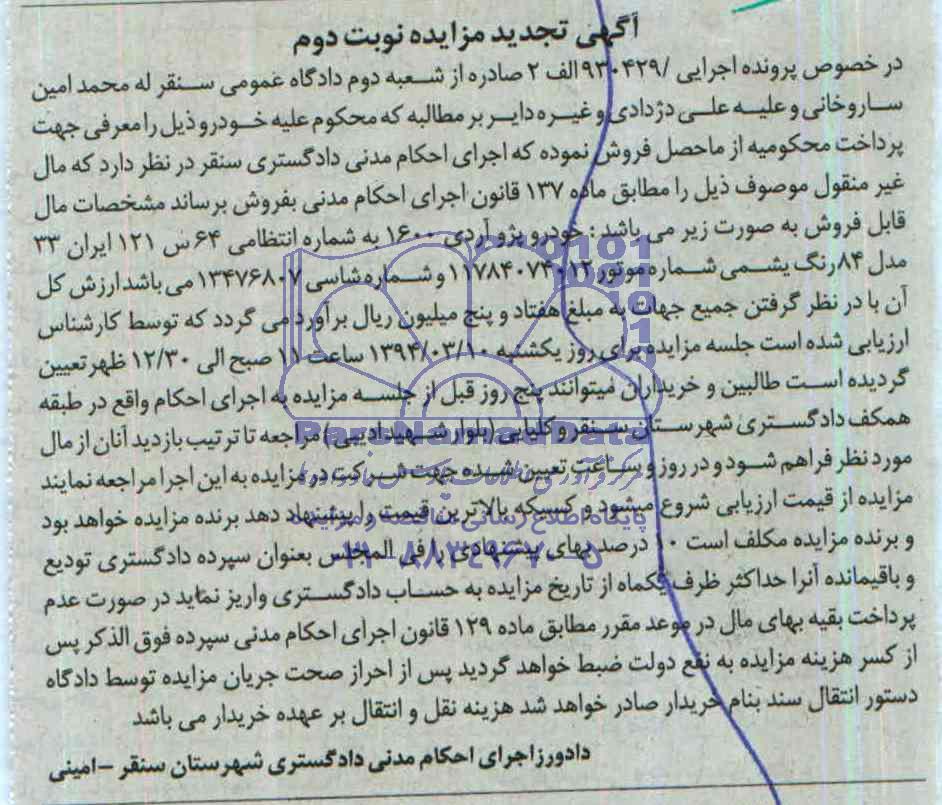 آگهی تجدید مزایده نوبت دوم
در خصوص پرونده اجرایی /۹۳۰۴۲۹الف ۲ صادره از شعبه دوم دادگاه عمومی سنقر له محمد امین
ساروخانی و علیه علی دژدادی و غیره دایر بر مطالبه که محکوم علیه خودرو ذیل را معرفی جهت
پرداخت محکومیه از ماحصل فروش نموده که اجرای احکام مدنی دادگستری سنقر در نظر دارد که مال
غیر منقول موصوف ذیل را مطابق ماده ۱۳۷ قانون اجرای احکام مدنی بفروش برساند مشخصات مال
قابل فروش به صورت زیر می باشد: خودرو پژو آردی ۱۶۰۰ به شماره انتظامی ۶۴س ۱۲۱ ایران ۳۳
مدل ۸۴رنگ یشمی شماره موتور ۱۱۷۸۴۰۷۴۰۱۲ و شماره شاسی ۱۳۴۷۶۸۰۷ می باشد ارزش کل
آن با در نظر گرفتن جمیع جهات به مبلغ هفتاد و پنج میلیون ریال برآورد می گردد که توسط کارشناس
ارزیابی شده است جلسه مزایده برای روز یکشنبه ۱۳۹۴/۰۳/۱۰ ساعت ۱۱ صبح الی ۱۲/۳۰ ظهر تعیین
گردیده است طالبین و خریداران میتوانند پنج روز قبل از جلسه مزایده به اجرای احکام واقع در طبقه
همکف دادگستری شهرستان سنقر و کلیایی (بلوار شهید ادیبی) مراجعه تا ترتیب بازدید آنان از مال
مورد نظر فراهم شود و در روز و ساعت تعیین شده جهت شرکت در مزایده به این اجرا مراجعه نمایند
مزایده از قیمت ارزیابی شروع میشود و کسیکه بالاترین قیمت را پیشنهاد دهد برنده مزایده خواهد بود
و برنده مزایده مکلف است ۱۰ درصد بهای پیشنهادی را فی المجلس بعنوان سپرده دادگستری تودیع
و باقیمانده آنرا حداکثر ظرف یکماه از تاریخ مزایده به حساب دادگستری واریز نماید در صورت عدم
پرداخت بقیه بهای مال در موعد مقرر مطابق ماده ۱۲۹ قانون اجرای احکام مدنی سپرده فوق الذکر پس
از کسر هزینه مزایده به نفع دولت ضبط خواهد گردید پس از احراز صحت جریان مزایده توسط دادگاه
دستور انتقال سند بنام خریدار صادر خواهد شد هزینه نقل و انتقال بر عهده خریدار می باشد
دادورز اجرای احکام مدنی دادگستری شهرستان سنقر –امینی